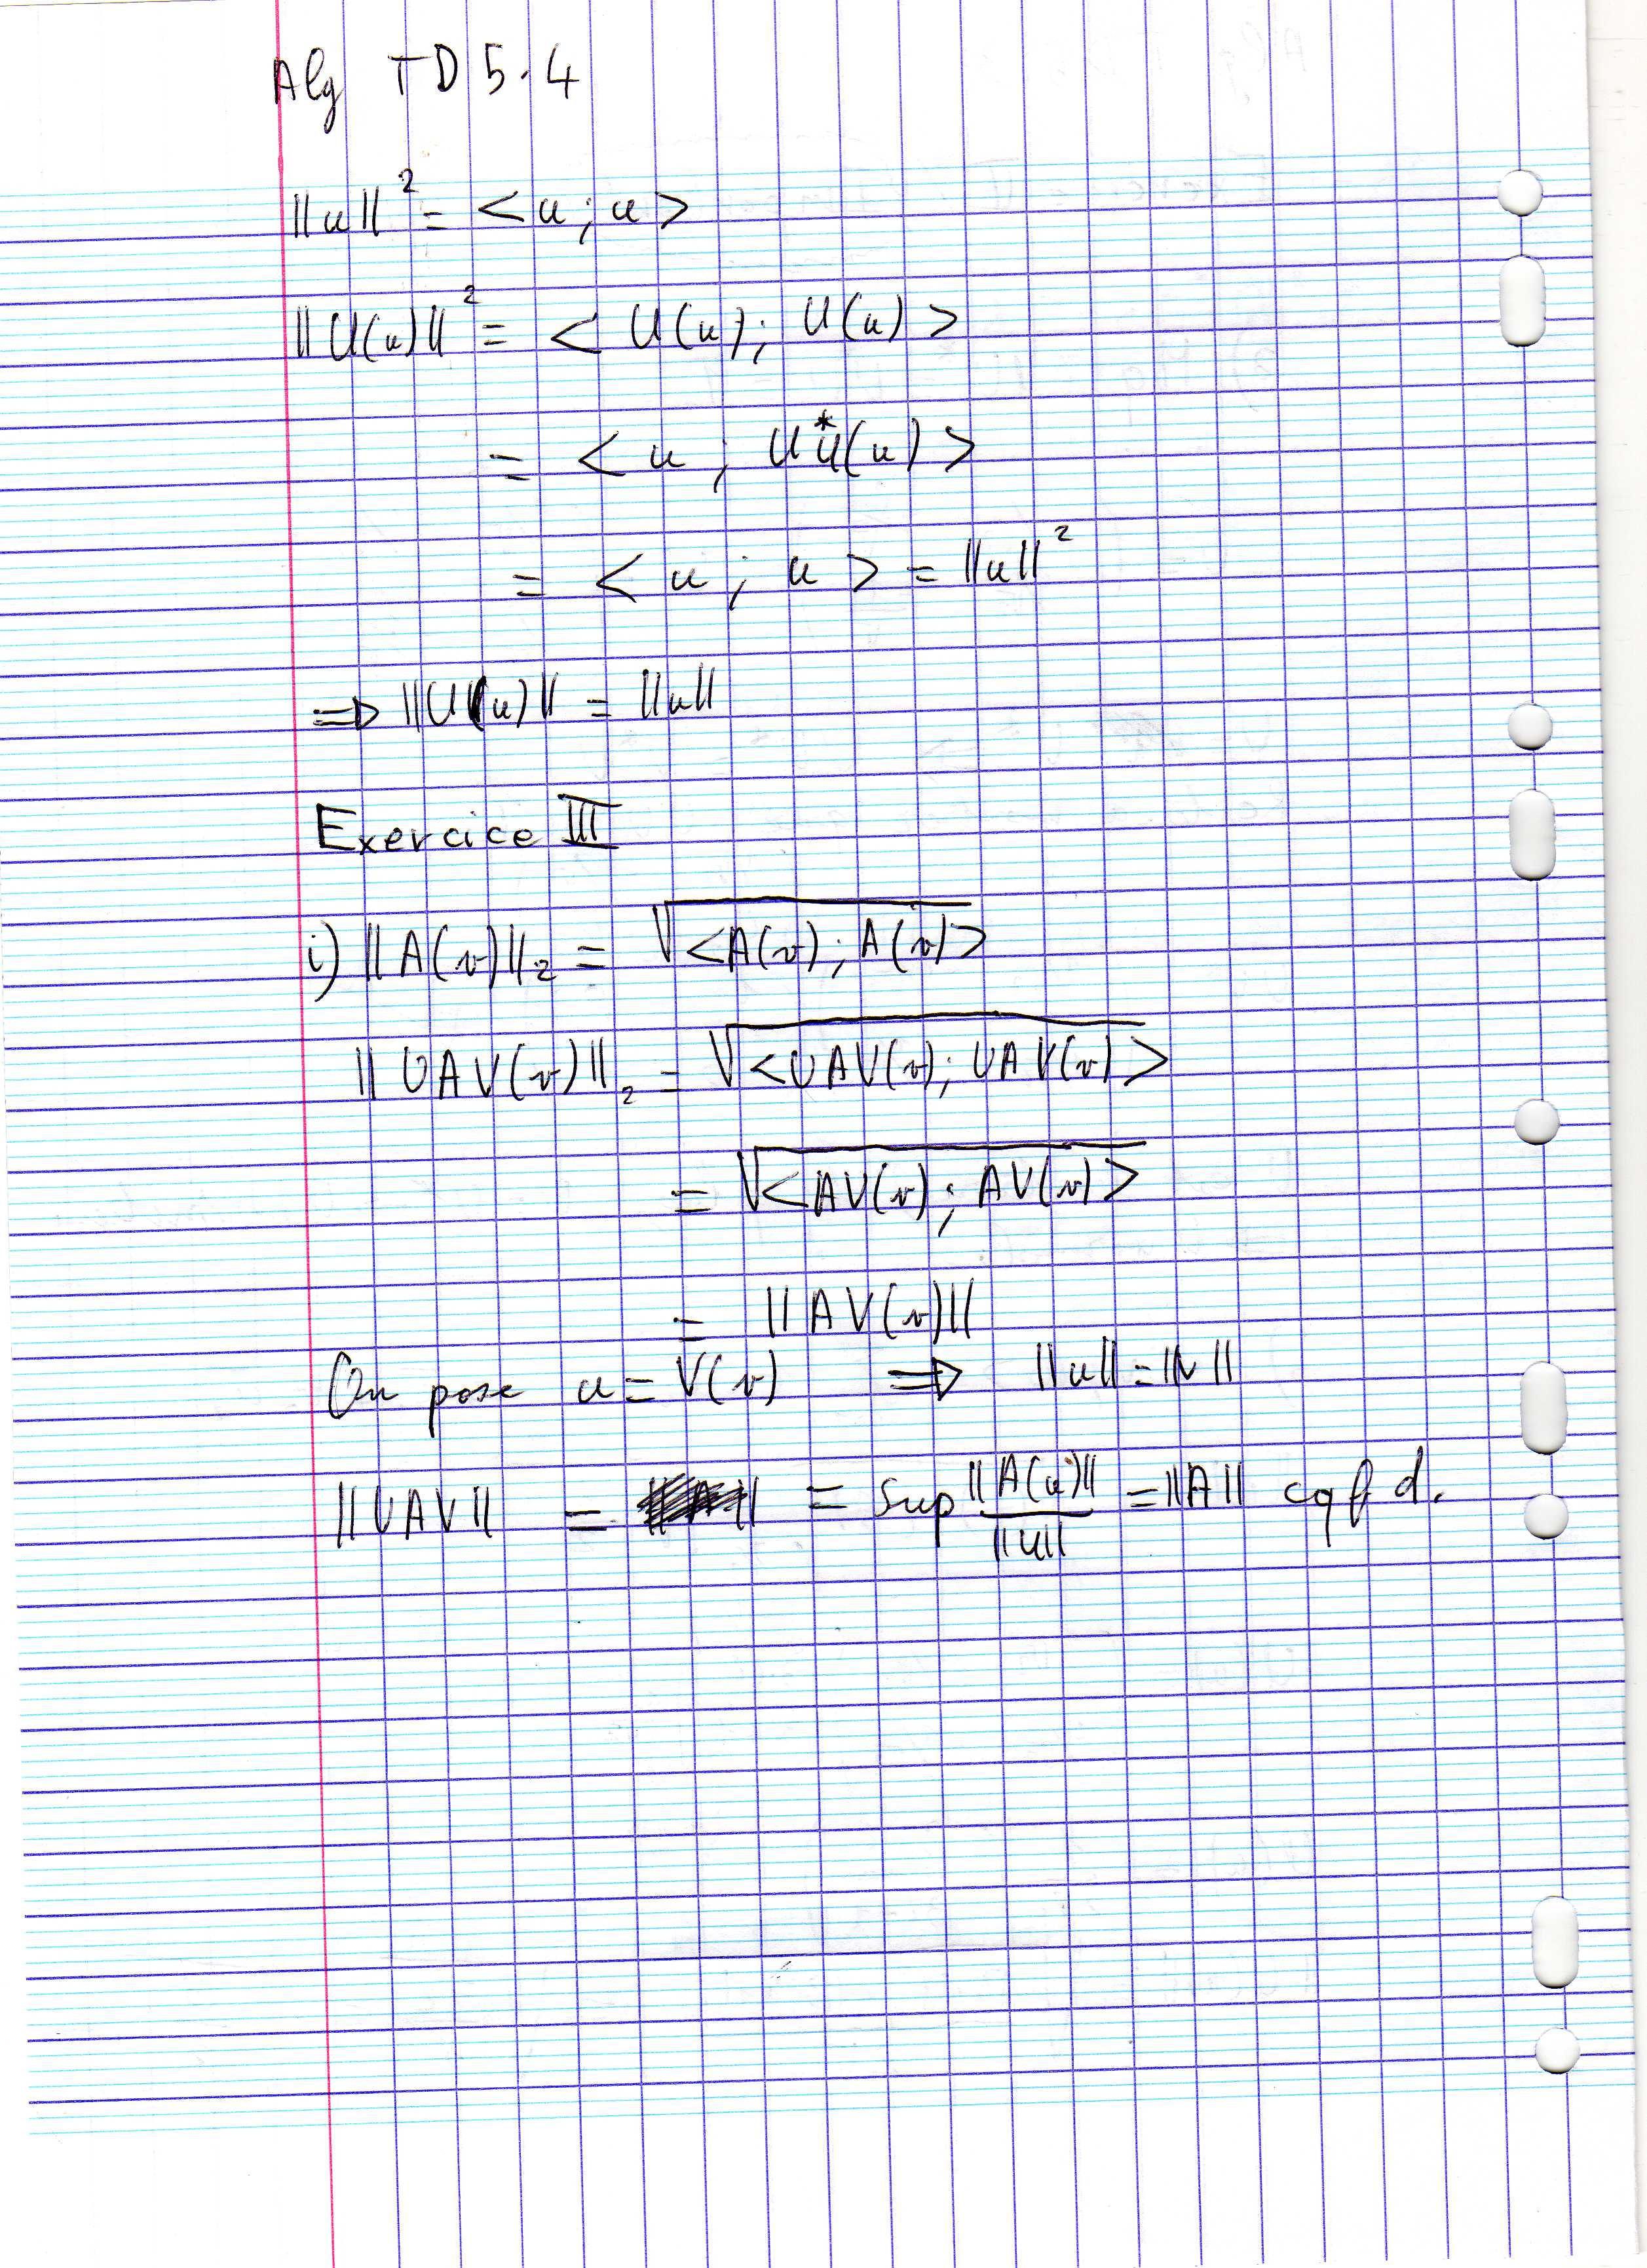 Alg TD 5.4
||u||² = <u ; u>
||U(u)||² = < U(u) ; U(u) >
= < u ; U*U(u) >
= < u ; u > = ||u||²
⟹ ||U(u)|| = ||u||
Exercice III
i) ||A(v)||₂ = √<A(v) ; A(v)>
||UAV(v)||₂ = √<UAV(v) ; UAV(v)>
= √<AV(v) ; AV(v)>
= ||AV(v)||
On pose u = V(v) ⟹ ||u|| = ||v||
||UAV|| = = sup ||A(u)|| / ||u|| = ||A|| cqfd.